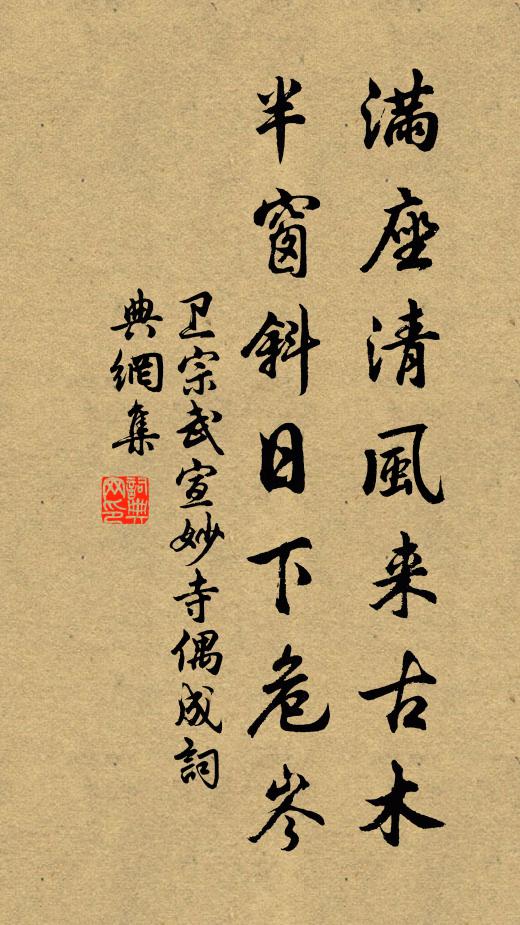 滿座清風来古木
半窗斜日下危岑
卫宗武宣妙寺偶成詞
典網集
詞典网印